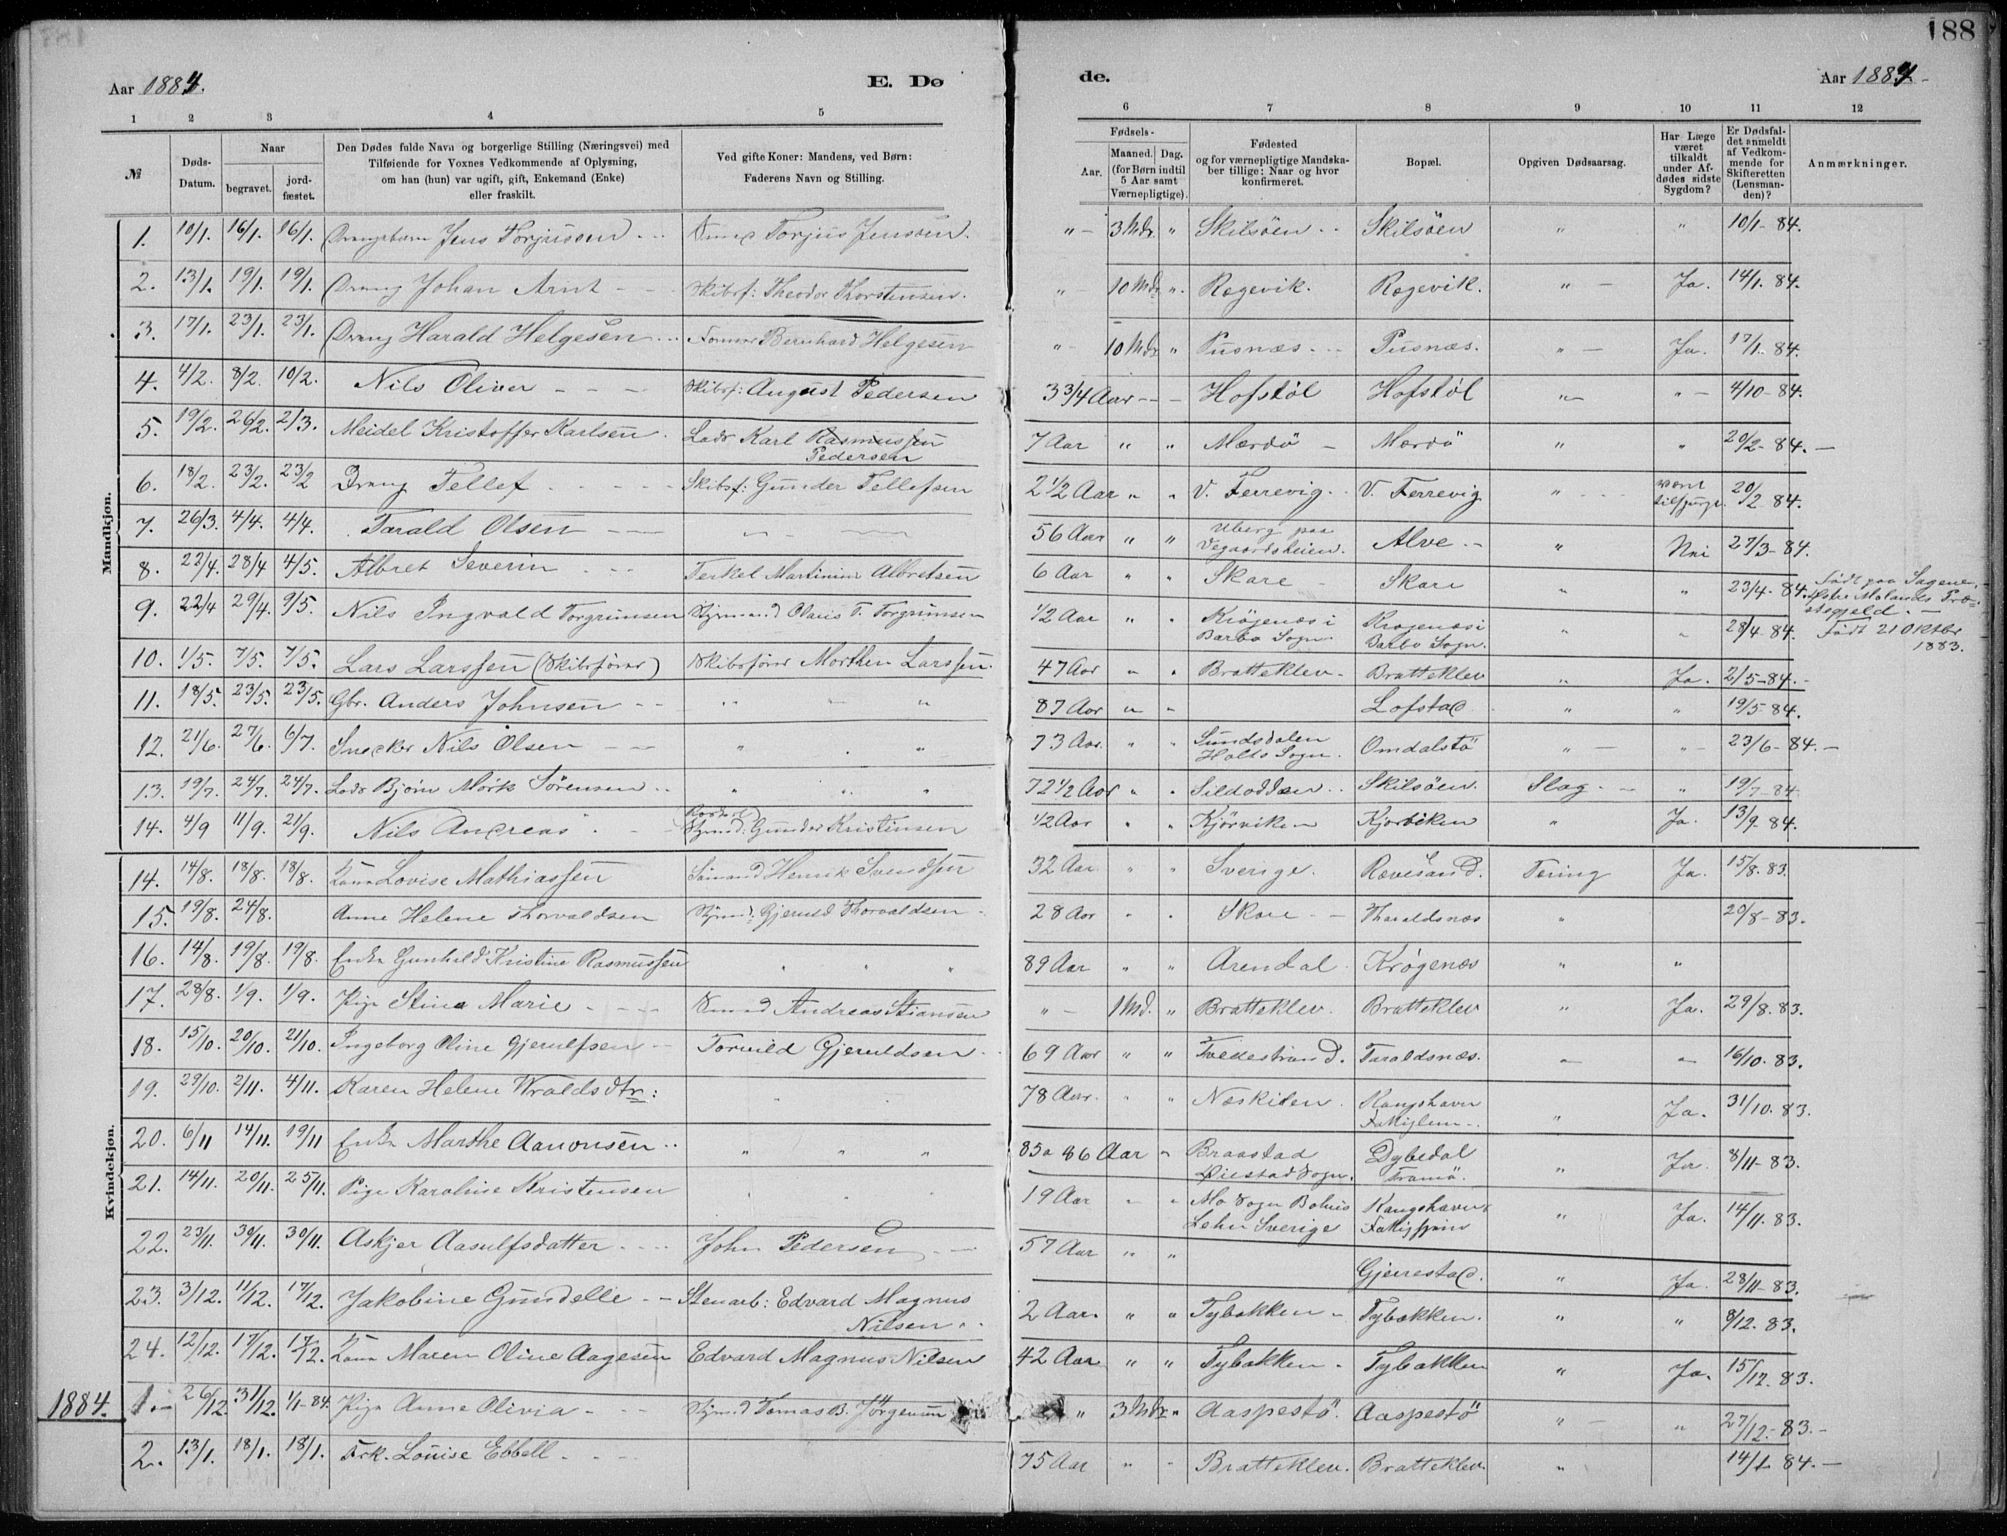 188
Aar 1884.
E. Dø
de.
Aar 1884
1 2 3 4 5 6 7 8 9 10 11 12
№
Døds-Datum.
Naar
begravet.
jord-fæstet.
Den Dødes fulde Navn og borgerlige Stilling (Næringsvei) med
Tilføiende for Voxnes Vedkommende af Oplysning,
om han (hun) var ugift, gift, Enkemand (Enke)
eller fraskilt.
Ved gifte Koner: Mandens, ved Børn:
Faderens Navn og Stilling.
Fødsels-
Aar.
Maaned. Dag.
(for Børn indtil
5 Aar samt
Værnepligtige).
Fødested
og for værnepligtige Mandska-
ber tillige: Naar og hvor
konfirmeret.
Bopæl.
Opgiven Dødsaarsag.
Har Læge
været
tilkaldt
under Af-
dødes sidste
Sygdom?
Er Dødsfal-
det anmeldt
af Vedkom-
mende for
Skifteretten
(Lensman-
den)?
Anmærkninger.
Mandkjøn.
1. 10/1. 16/1. 16/1. Drengebarn Jens Torjussen Torjus Jensen. " 3 Mdr. " Skilsöen Skilsöen " " 10/1-84.
2. 13/1. 19/1. 19/1. Dreng Johan Arnt Skibsf: Theodor Thorstensen. " 10 Mdr " Rægevik. Rægevik. " Ja. 14/1. 84.
3. 17/1. 23/1. 23/1. Dreng Harald Helgesen Tømmer Bernhard Helgesen " 10 Mdr " Pusnæs Pusnæs. " Ja. 17/1. 84.
4. 4/2. 8/2. 10/2. Nils Oliver Skibsf: August Pedersen 3 3/4 Aar Hofstöl Hofstöl " " 4/10-84.
5. 19/2. 26/2. 2/3. Meidel Kristoffer Karlsen. Lods Karl Rasmussen Pedersen 7 Aar " " Mærdö Mærdö " " 20/2-84.
6. 18/2. 23/2. 23/2 Dreng Tellef Skibsf: Gunder Tellefsen 2 1/2 Aar " " V. Terrevig V. Terrevig " 20/2 84.
7. 26/3. 4/4. 4/4. Tarald Olsen 56 Aar " " Uberg paa Vegaardsheien. Alve " Nei 27/3-84.
8. 22/4. 28/4 4/5. Albret Severin Terkel Martinius Albretsen 6 Aar " " Skare Skare " " 23/4-84. Født paa Sagene, Østre Molands Præstegjeld.
9. 22/4 29/4. 9/5. Nils Ingvald Torgrimsen Styrmand Olaus T. Torgrimsen 1/2 Aar " " Krögenæs i Barbo Sogn. Krögenæs i Barbo Sogn. " " 28/4-84. Født 21 Oktbr 1883.
10. 1/5. 7/5. 7/5. Lars Larssen (Skibsfører) Skibsfører Morthen Larssen. 47 Aar " " Bratteklev. Bratteklev " Ja. 2/5-84.
11. 18/5. 23/5. 23/5. Gbr. Anders Johnsen " " 87 Aar " " Lofstad. " " 19/5-84.
12. 21/6. 27/6. 6/7. Snecker Nils Olsen " " 73 Aar. " " Sundsdalen Holts Sogn. Omdalstö " " 23/6-84.
13. 19/7. 24/7. 24/7. Lods Bjørn Mörk Sörensen " " " 72 1/2 Aar " " Sildodden Skilsöen. Slag. " 19/7-84
14. 4/9 11/9. 21/9. Nils Andreas Styrmd: Gunder Kristensen 1/2 Aar " " Kjörviken Kjörviken " Ja. 13/9-84.
Kvindekjøn.
14. 14/8. 18/8. 18/8. Kone Lovise Mathiassen Sömand Henrik Svendsen 32 Aar. " " Sverige. Rævesand. Tæring Ja. 15/8. 83.
15. 19/8. 24/8. Anne Helene Thorvaldsen Styrmd: Gjeruld Thorvaldsen 28 Aar " " Skare Tharaldsnæs " 20/8-83.
16. 14/8. 19/8. 19/8. Enke Gunhild Kristine Rasmussen " " " 89 Aar " " Arendal. Krögenæs " "
17. 28/8. 1/9. 1/9. Pige Stine Marie Sömand Andreas Stiansen " 1 Md. " Bratteklev. Bratteklev " Ja. 29/8. 83.
18. 15/10. 20/10. 21/10. Ingeborg Oline Gjerulfsen Torvild Gjeruldsen 69 Aar " " Tvedestrand. Taraldsnæs. " " 16/10. 83.
19. 29/10. 2/11. 4/11. Karen Helene Wraldsdtr: " " 78 Aar. " " Næskilen. Kongshavn " Ja. 31/10. 83.
20. 6/11 14/11. 19/11 Enke Marthe Aanonsen " " " 85 a 86 Aar " Braastad Øiestad Sogn. Dybedal Tromö. " Ja. 8/11-83.
21. 14/11. 20/11. 25/11. Pige Karoline Kristensen " " 19 Aar " " Mo Sogn Bohus Lehn Sverige Kongshavn " Ja. 14/11. 83.
22. 23/11. 30/11. 30/11. Askjer Aasulfsdatter John Pedersen 57 Aar " " Gjerrestad. " Ja. 28/11-83.
23. 3/12. 11/12. 17/12. Jakobine Gundelle Stenarb: Edvard Magnus Nilsen. 2 Aar. " " Tybakken Tybakken. " " 8/12. 83.
24. 12/12. 17/12. 17/12. Kone Maren Oline Aagesen Edvard Magnus Nilsen 42 Aar " " Tybakken Tybakken " Ja. 15/12. 83.
1884. 1. 26/12. 31/12. 1/1-84. Pige Anne Olivia Styrmd Tomas B. Jörgensen " 3 Mdr " Aaspestö. Aaspestö " " 27/12-83.
2. 13/1. 18/1. 18/1. Frk. Louise Ebbell 75 Aar " Bratteklev. Bratteklev. " 14/1 84.